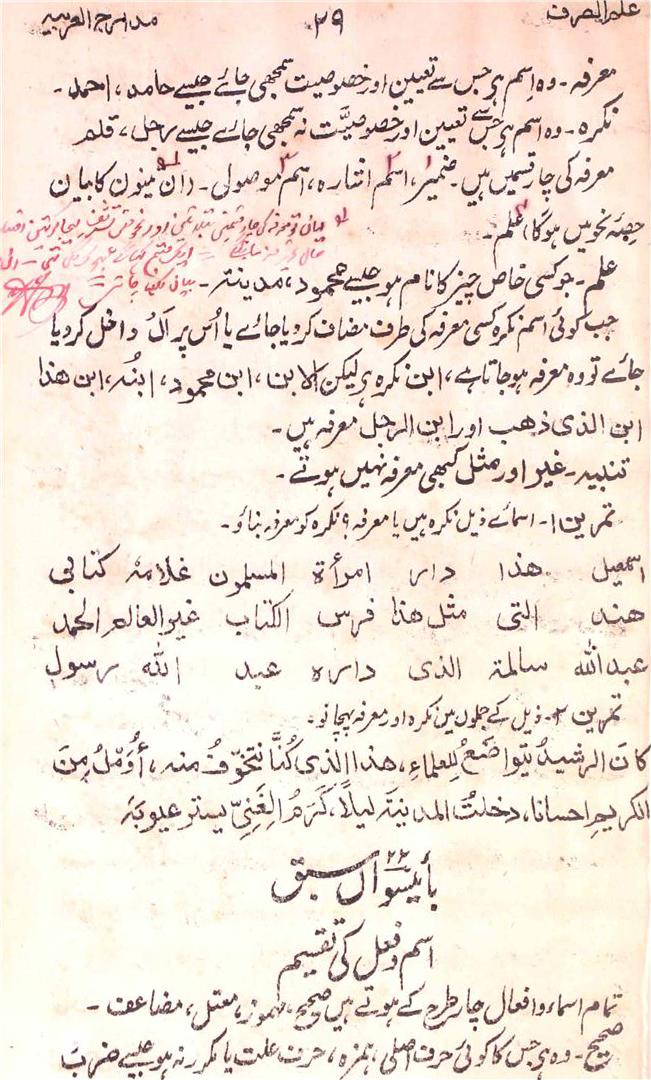 علم الصرف ۲۹ مدارج العربیہ
معرفہ۔ وہ اسم ہی جس سے تعیین اور خصوصیت سمجھی جائے جیسے حامد، احمد۔
نکرہ۔ وہ اسم ہی جس سے تعیین اور خصوصیَّت نہ سمجھی جائے جیسے رجل، قلم
معرفہ کی چار قسمیں ہیں۔ ضمیر، اسم اشارہ، اسم موصولی۔ (ان تینوں کا بیان
حصّہ نحو میں ہوگا) علم۔
علم۔ جو کسی خاص چیز کا نام ہو جیسے محمود، مدینۃ۔
جب کوئی اسم نکرہ کسی معرفہ کی طرف مضاف کر دیا جائے یا اُس پر اَلْ داخل کر دیا
جائے تو وہ معرفہ ہو جاتا ہے، ابن نکرہ ہی لیکن الابن، ابن محمود، ابنُہ، ابن ھذا
ابن الذی ذھب اور ابن الرجل معرفہ ہیں۔
تنبیہ۔ غیر اور مثل کبھی معرفہ نہیں ہوتے۔
تمرین ۱۔ اسمائے ذیل نکرہ ہیں یا معرفہ؟ نکرہ کو معرفہ بناؤ۔
اسمعیل ھذا دار امرأۃ المسلمون غلامہٗ کتابی
ھند التی مثل ھذا فرس الکتاب غیر العالم الحمد
عبد اللہ سالمۃ الذی دارہ عبد اللہ رسول
تمرین ۲۔ ذیل کے جملوں میں نکرہ اور معرفہ پہچانو۔
کانَ الرشیدُ یتواضَعُ لِلعلماءِ، ھذا الذی کُنَّا نتخوّفُ منہ، أُوَمّلُ مِنَ
الکریمِ احسانا، دخلتُ المدینۃَ لیلًا، کَرَمُ الغَنِیِّ یستر عیوبَہ
۲۲
بائیسواں سبق
اسم و فعل کی تقسیم
تمام اسماء و افعال چار طرح کے ہوتے ہیں صحیح، مہموز، معتل، مضاعف۔
صحیح۔ وہ ہی جس کا کوئی حرف اصلی ہمزہ، حرف علت یا مکرر نہ ہو جیسے ضرب